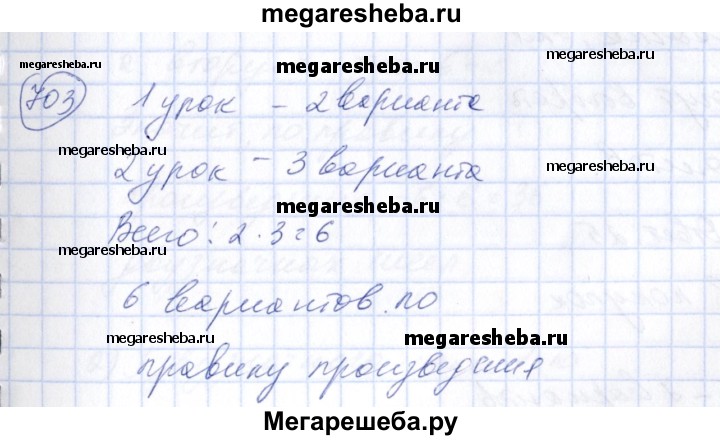 megaresheba.ru
megaresheba.ru megaresheba.ru megaresheba.ru
703 1 урок – 2 варианта
megaresheba.ru megaresheba.ru
2 урок – 3 варианта
megaresheba.ru
Всего: 2 · 3 = 6
megaresheba.ru megaresheba.ru
6 вариантов по
megaresheba.ru megaresheba.ru
правилу произведения
Мегарешеба.ру